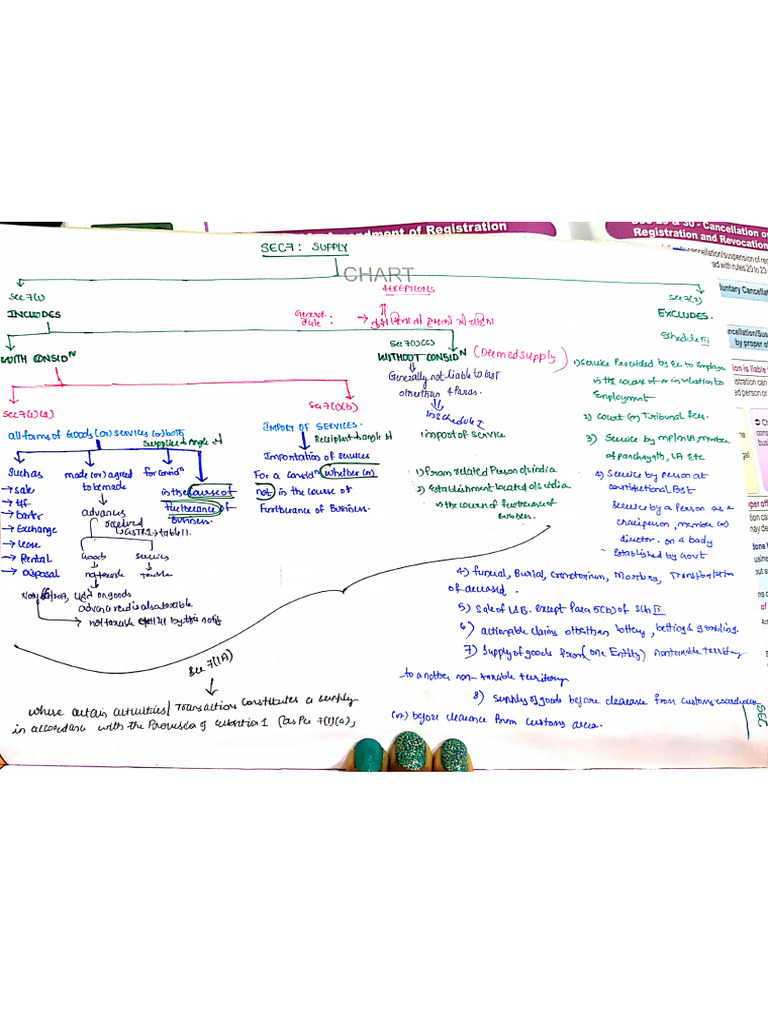 ndment of Registration
SEC 29 & 30 - Cancellation o
Registration and Revocation
cancellation/suspension of re
ad with rules 20 to 23
luntary Cancella
ncellation/Sus
by proper of
ion is liable
istration can
ed person or
SEC 7 : SUPPLY
CHART
Sec 7(1)
INCLUDES
4 EXCEPTIONS
General
Rule :
Sec 7(2)
EXCLUDES.
Schedule III
WITH CONSIDN
Sec 7(1)(c)
WITHOUT CONSIDN (Deemed supply)
Generally not liable to GST
other than 4 Paras.
In Schedule I
import of service
1) from related Person o/s india
2) Establishment located o/s india
in the course of furtherance of
business.
Sec 7(1)(a)
all forms of Goods (or) services (or) both
Supplier angle
Such as
→ Sale
→ t/f
→ barter
→ Exchange
→ lease
→ Rental
→ disposal
made (or) agreed
to be made
advances
received
GSTR1 → table 11.
Goods
not taxable
Services
taxable
for considn
in the course of
furtherance of
Business.
on goods
advance red is also taxable
not taxable by this notify
Sec 7(1)(b)
IMPORT OF SERVICES.
Recipient angle
Importation of services
For a considn whether (or)
not in the course of
Furtherance of Business.
1) Service Provided by Ee to Employer
in the course of or in relation to
Employment
2) Court (or) Tribunal Ser.
3) Service by MP, MLA, member
of panchayath, LA Etc
4) Service by person at
constitutional Post
Service by a Person as a
chairperson, member (or)
director. on a body
Established by Govt
4) funeral, Burial, Crematorium, Mortuary, Transportation
of deceased.
5) Sale of L&B. except Para 5(b) of Sch II
6) actionable claims other than lottery, betting & gambling.
7) Supply of goods from (one Entity) nontaxable territory
to another non-taxable territory
8) supply of goods before clearance from customs warehouse
(or) before clearance form customs area.
Sec 7(1A)
where certain activities/ Transactions constitutes a supply
in accordance with the Provision of subsection 1 (as Per 7(1)(a),
SEC